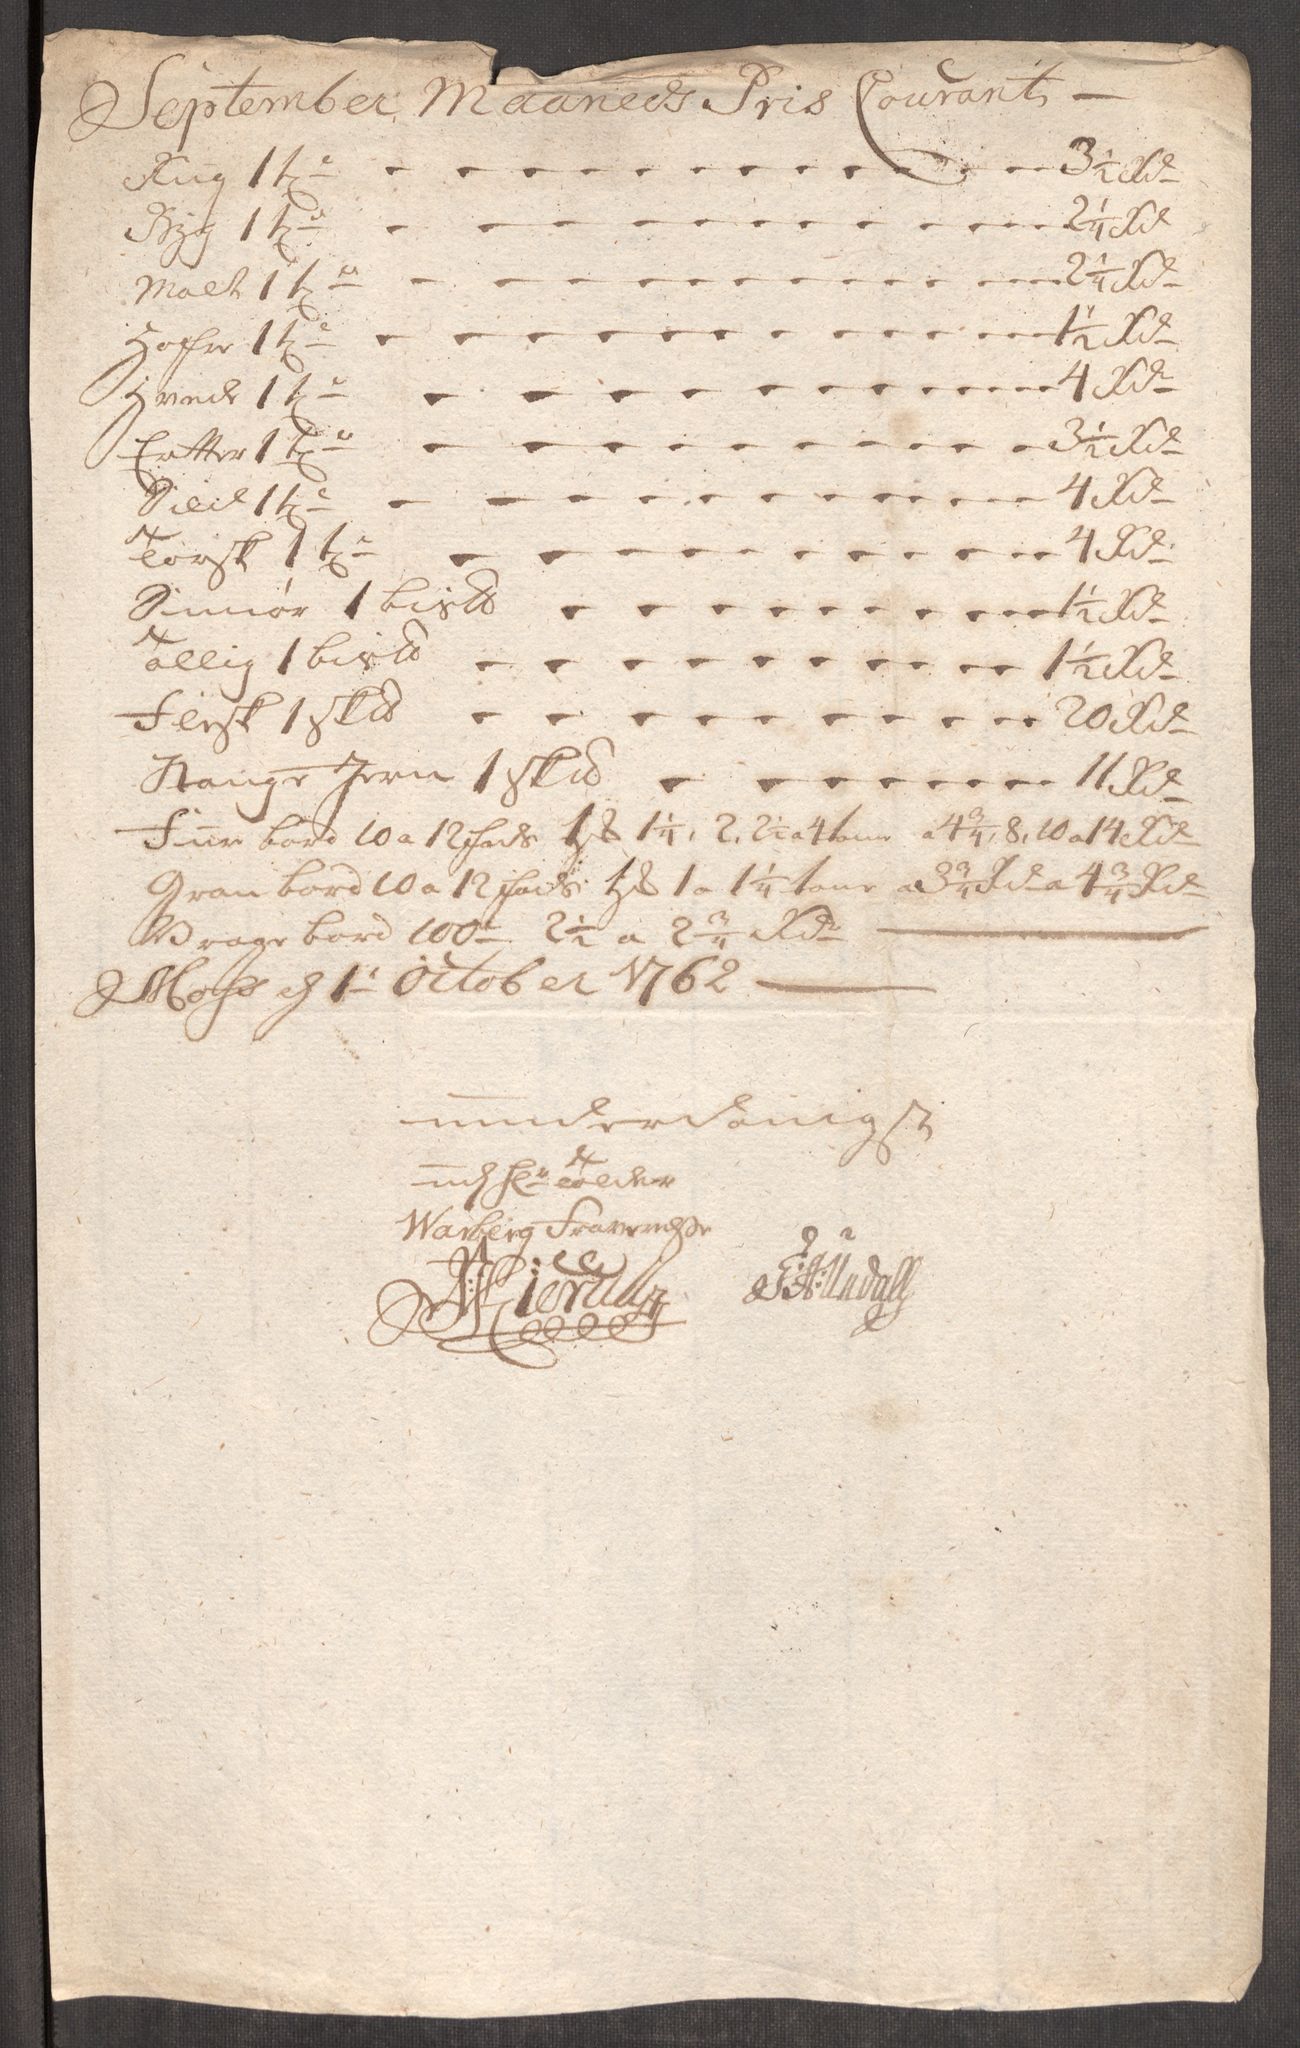 September Maaneds Pris Courant —
Rug 1 tde - - - - - - - - - - - - 3½ Rdr
Byg 1 tde - - - - - - - - - - - - 2¼ Rdr
Malt 1 tde - - - - - - - - - - - - 2¼ Rdr
Hafre 1 tde - - - - - - - - - - - - 1½ Rdr
Hvede 1 tde - - - - - - - - - - - - 4 Rdr
Ertter 1 tde - - - - - - - - - - 3½ Rdr
Sild 1 tde - - - - - - - - - - - - 4 Rdr
Torsk 1 tde - - - - - - - - - - 4 Rdr
Smiør 1 bis℔ - - - - - - - - - 1½ Rdr
Tallig 1 bis℔ - - - - - - - - - 1½ Rdr
Flesk 1 sk℔ - - - - - - - - - 20 Rdr
Stange Jern 1 sk℔ - - - - - - - - 11 Rdr
Fure bord 10 a 12 fods 1¼, 2, 2½ a 4 tome a 4¾, 8, 10 a 14 Rdr
Gran bord 10 a 12 fods 1 a 1¼ tome a 3¾ Rdr a 4¾ Rdr
Wrage bord 100de 2½ a 2¾ Rdr —
Moss d 1te October 1762 —
underdanigst
udj Hr Tolder
Warberg Fraverelse